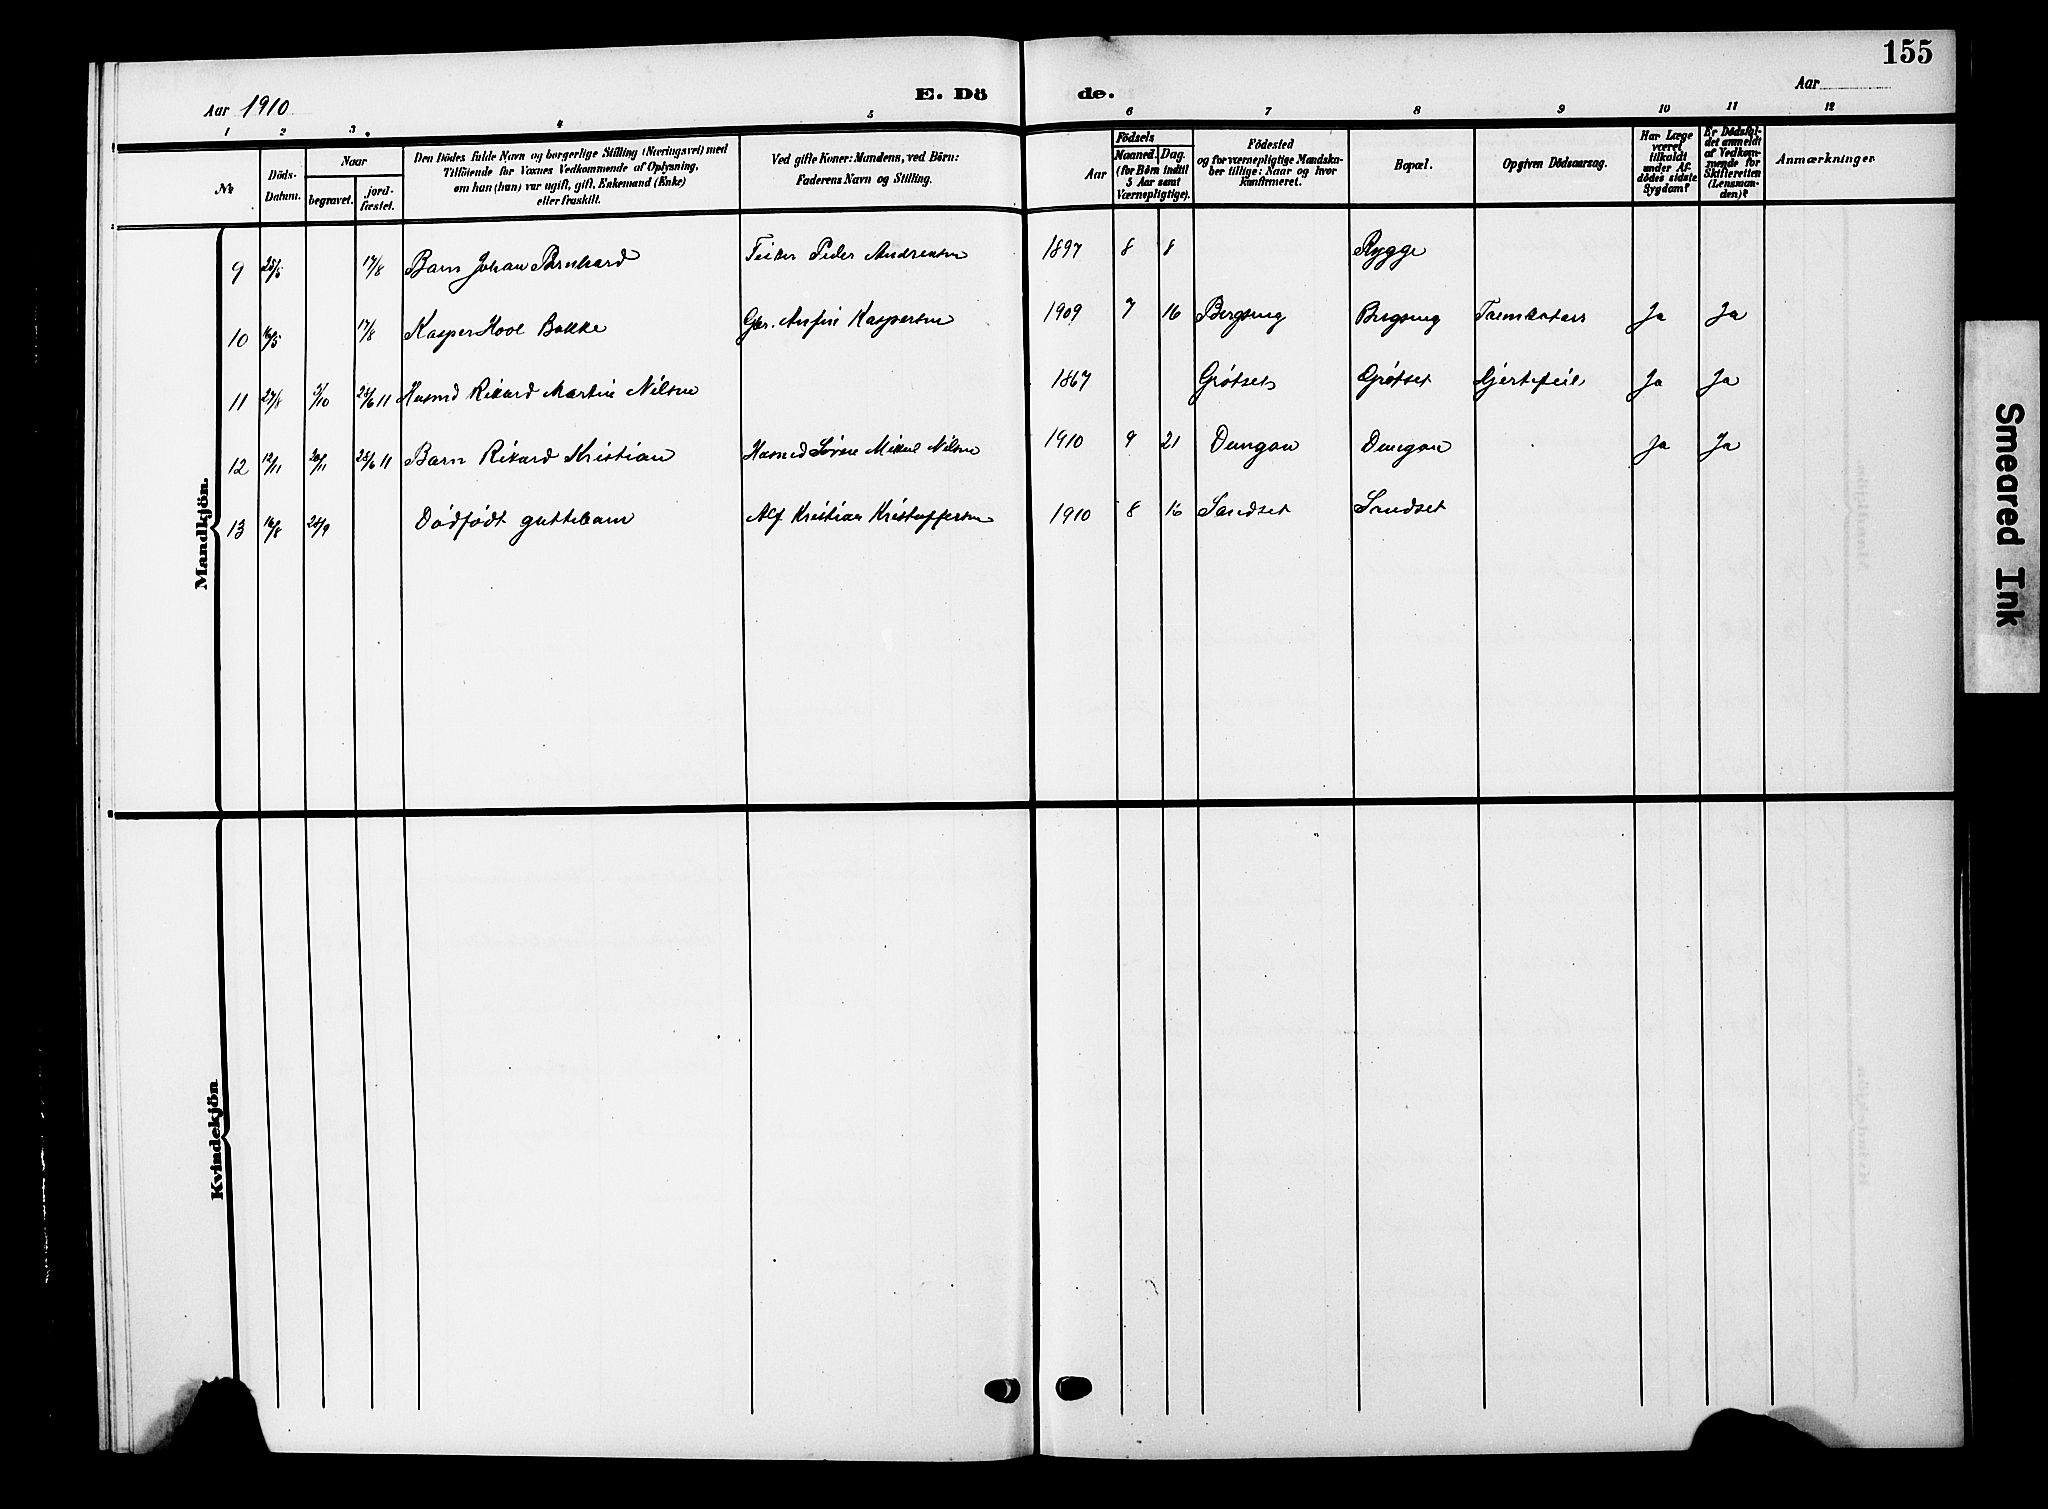 155
Aar 1910
E. Dö
de.
Aar
1 2 3. 4 5 6 7 8 9 10 11 12
№
Döds-
Datum.
Naar
begravet.
jord-
fæstet.
Den Dödes fulde Navn og borgerlige Stilling (Næringsvei) med
Tilföiende for Voxnes Vedkommende af Oplysning,
om han (hun) var ugift, gift, Enkemand (Enke)
eller fraskilt.
Ved gifte Koner: Mandens, ved Börn:
Faderens Navn og Stilling.
Födsels
Aar
Maaned.
Dag.
(for Börn indtil
5 Aar samt
Værnepligtige).
Födested
og for værnepligtige Mandska-
ber tillige: Naar og hvor
konfirmeret.
Bopæl.
Opgiven Dödsaarsag.
Har Læge
været
tilkaldt
under Af-
dödes sidste
Sygdom?
Er Dödsfal-
det anmeldt
af Vedkom-
mende for
Skifteretten
(Lensman-
den)?
Anmærkninger
Mandkjön.
9 25/5 17/8 Barn Johan Bernhard Peder Andreasen 1897 8 8 Rygge
10 17/8 Kasper Bakke Kaspersen 1909 7 16 Bergsung Bergsung Ja Ja
11 27/8 2/10 25/6 11 Husmd Rikard Martin Nilsen 1867 Grötset Grötset Hjertefeil Ja Ja
12 12/11 20/11 25/6 11 Barn Rikard Kristian Husmd Sören Mikal Nilsen 1910 9 21 Dungan Dungan Ja Ja
13 16/8 25/9 Dödfödt guttebarn Alf Kristian Kristoffersen 1910 8 16 Sandset Sandset
Kvindekjön
Smeared Ink